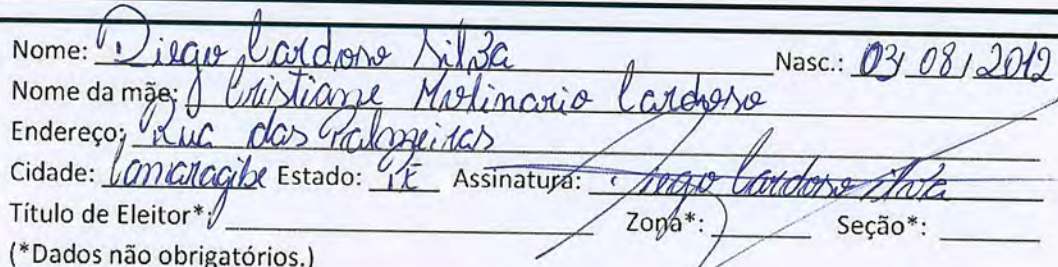 Nome: Diego Cardoso Silva Nasc.: 03/08/2012
Nome da mãe: Cristiane Molinario Cardoso
Endereço: Rua das Palmeiras
Cidade: Camaragibe Estado: PE Assinatura: Diego Cardoso Silva
Título de Eleitor*: Zona*: Seção*:
(*Dados não obrigatórios.)